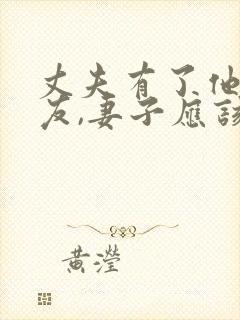 丈夫有了他
友,妻子應該
黄瀅